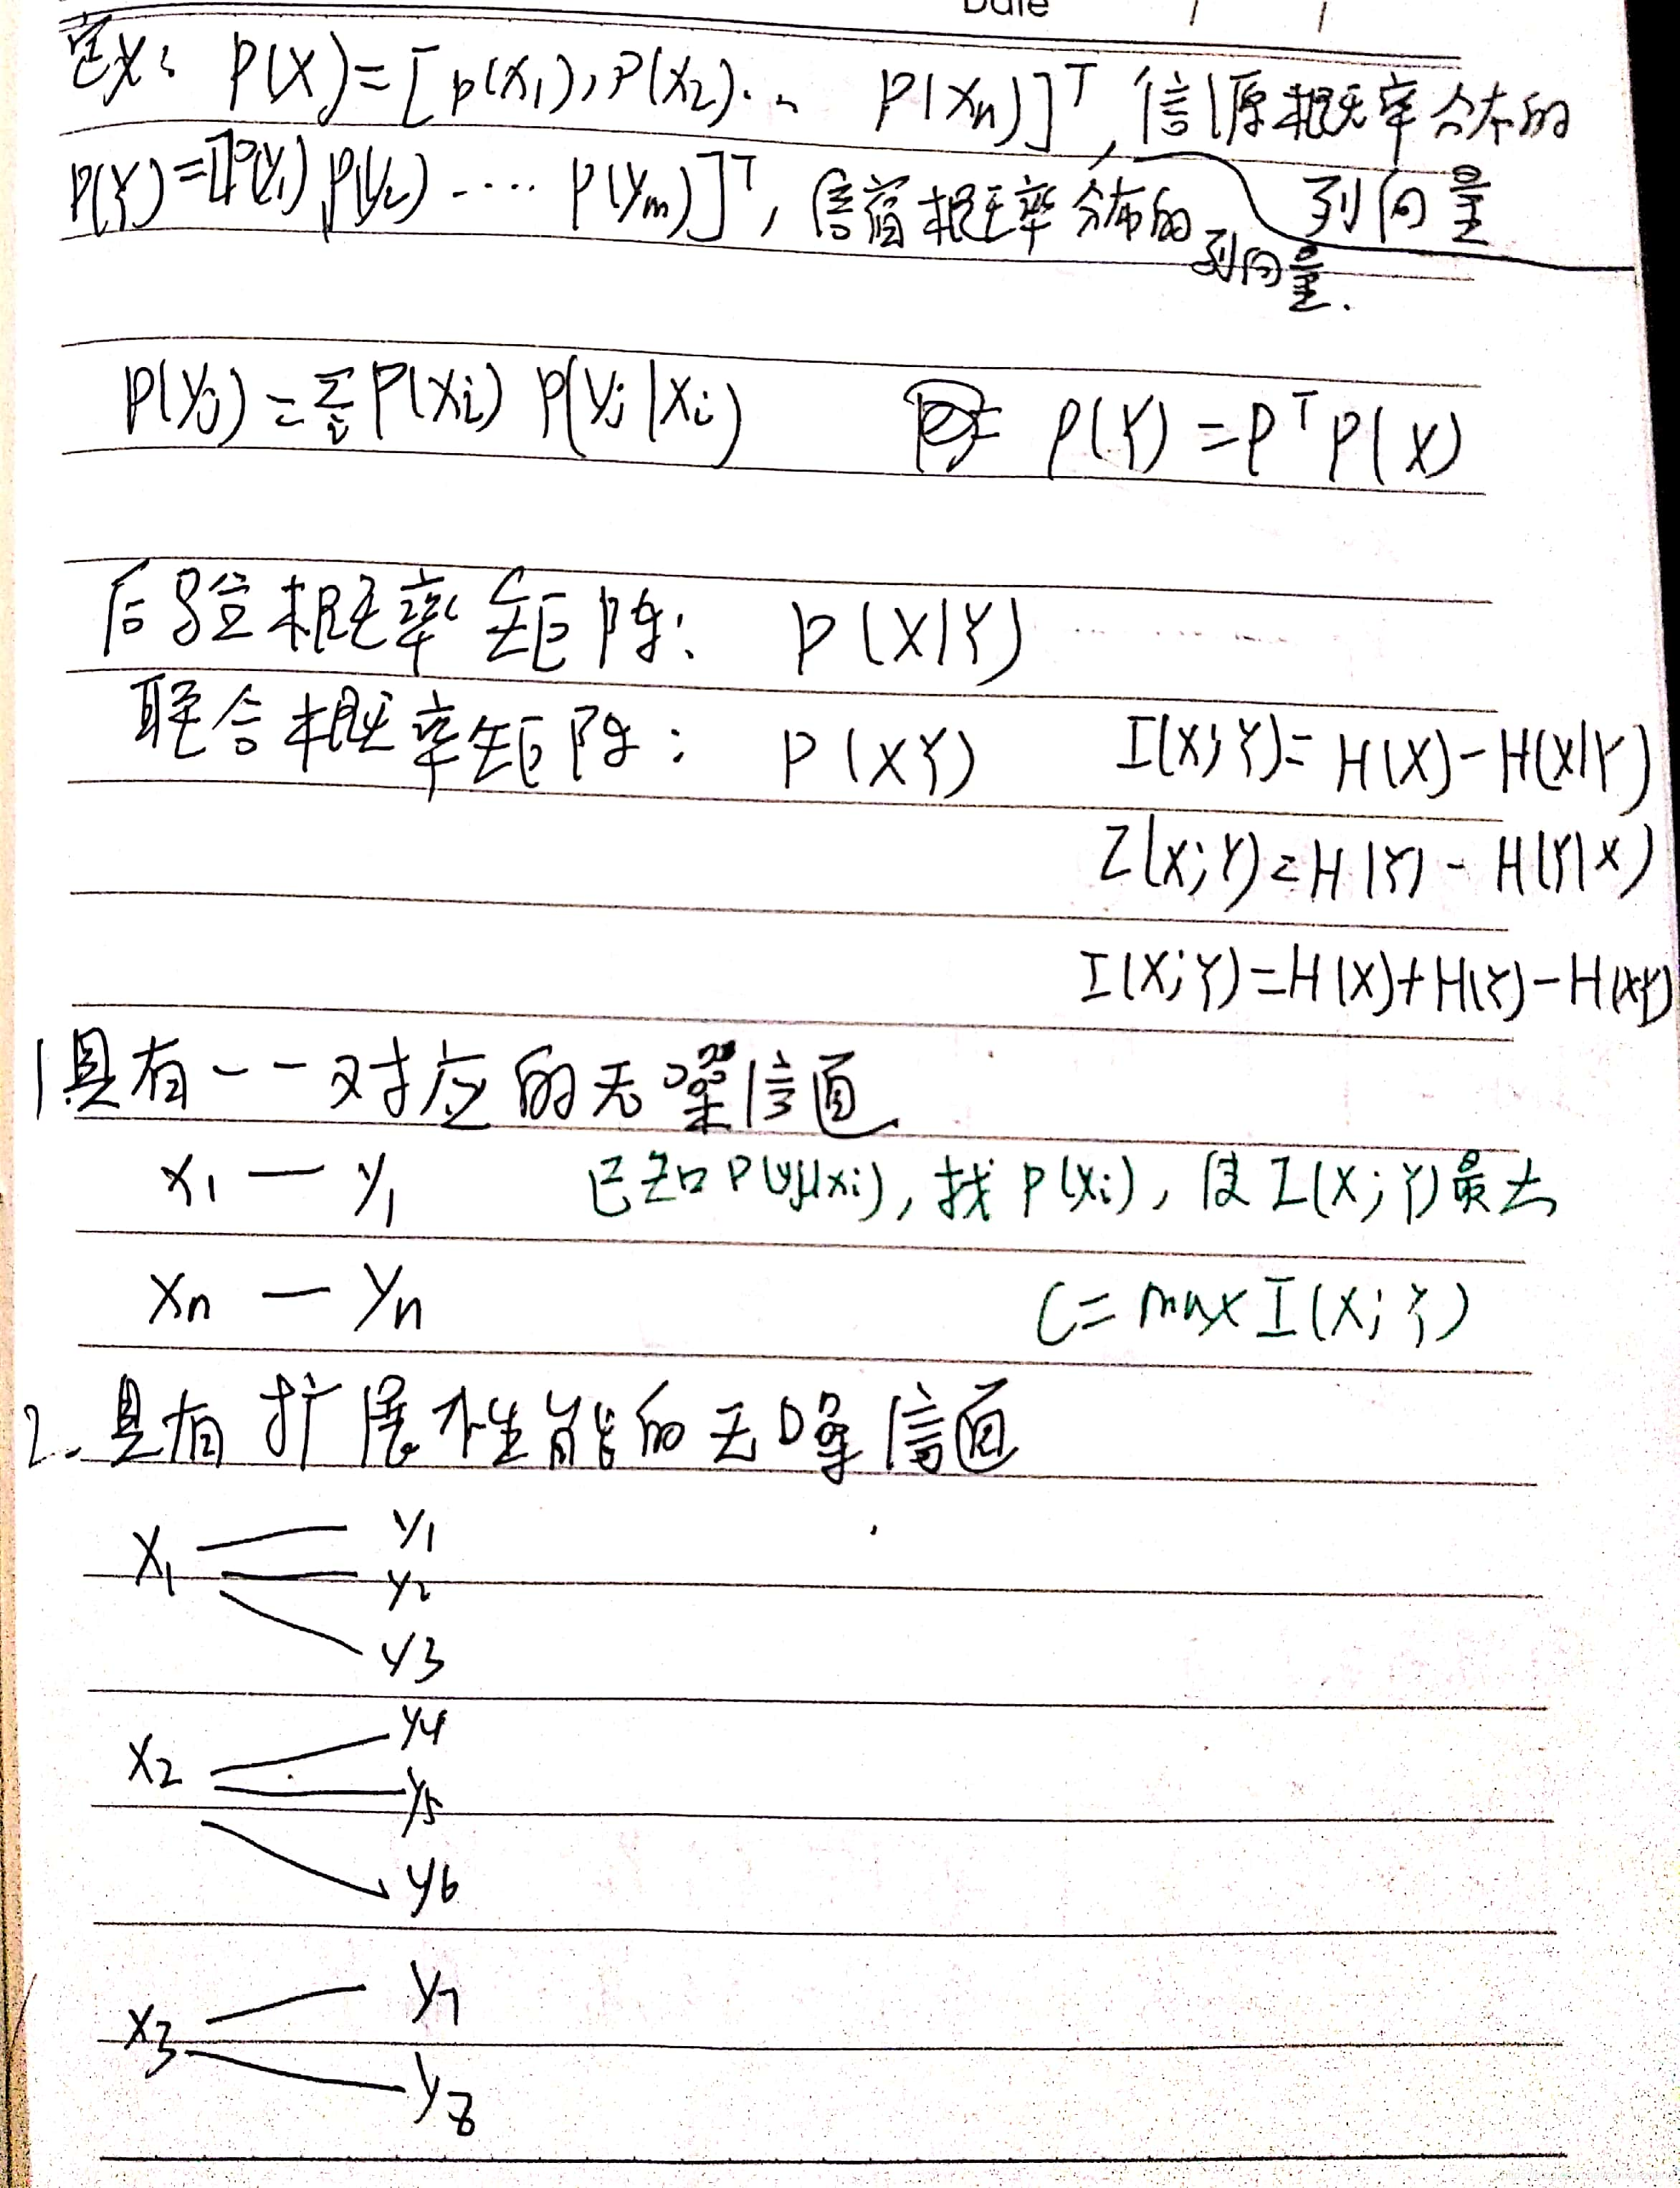 Date / /
定义: P(X)=[p(x₁),P(x₂)... P(xₙ)]ᵀ, 信源概率分布的
列向量
P(Y)=[P(y₁) P(y₂) .... P(yₘ)]ᵀ, 信宿概率分布的
列向量.
P(yⱼ)=∑ᵢP(xᵢ) P(yⱼ|xᵢ) P(Y)=PᵀP(X)
后验概率矩阵: P(X|Y)
联合概率矩阵: P(XY) I(X;Y)=H(X)-H(X|Y)
I(X;Y)=H(Y)-H(Y|X)
I(X;Y)=H(X)+H(Y)-H(XY)
1具有一一对应的无噪信道
x₁ — y₁ 已知P(yⱼ|xᵢ), 找P(xᵢ), 使I(X;Y)最大
xₙ — yₙ C=max I(X;Y)
2.具有扩展性能的无噪信道
x₁ y₁
y₂
y₃
x₂ y₄
y₅
y₆
x₃ y₇
y₈